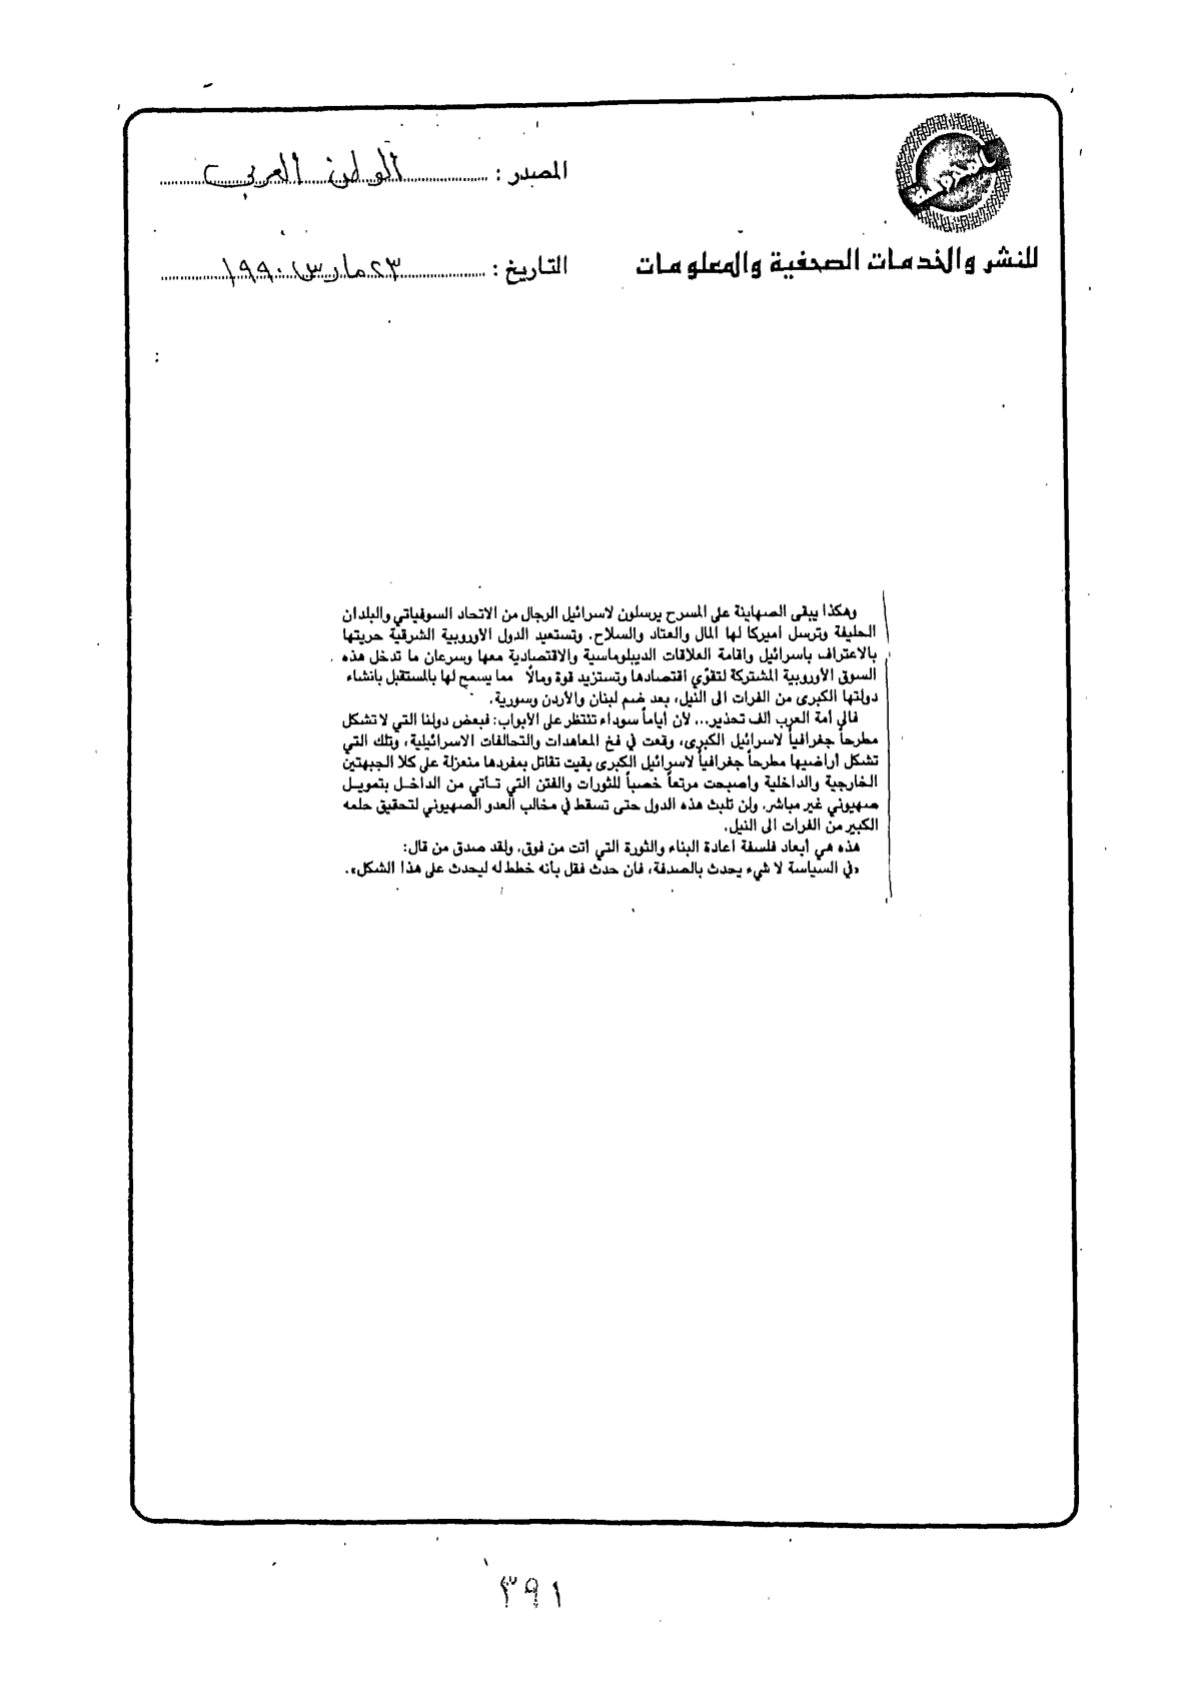 المصدر : الوطن العربي
للنشر والخدمات الصحفية والمعلومات
التاريخ : ٢٣ مارس ١٩٩٠
وهكذا يبقى الصهاينة على المسرح يرسلون لاسرائيل الرجال من الاتحاد السوفياتي والبلدان
الحليفة وترسل اميركا لها المال والعتاد والسلاح. وتستعيد الدول الاوروبية الشرقية حريتها
بالاعتراف باسرائيل واقامة العلاقات الديبلوماسية والاقتصادية معها وسرعان ما تدخل هذه
السوق الأوروبية المشتركة لتقوّي اقتصادها وتستزيد قوة ومالاً مما يسمح لها بالمستقبل بانشاء
دولتها الكبرى من الفرات الى النيل، بعد ضم لبنان والأردن وسورية.
فالى أمة العرب الف تحذير... لأن أياماً سوداء تنتظر على الأبواب: فبعض دولنا التي لا تشكل
مطرحاً جغرافياً لاسرائيل الكبرى، وقعت في فخ المعاهدات والتحالفات الاسرائيلية، وتلك التي
تشكل أراضيها مطرحاً جغرافياً لاسرائيل الكبرى بقيت تقاتل بمفردها منعزلة على كلا الجبهتين
الخارجية والداخلية وأصبحت مرتعاً خصباً للثورات والفتن التي تأتي من الداخل بتمويل
صهيوني غير مباشر. ولن تلبث هذه الدول حتى تسقط في مخالب العدو الصهيوني لتحقيق حلمه
الكبير من الفرات الى النيل.
هذه هي أبعاد فلسفة اعادة البناء والثورة التي أتت من فوق. ولقد صدق من قال:
«في السياسة لا شيء يحدث بالصدفة، فان حدث فقل بأنه خطط له ليحدث على هذا الشكل».
٣٩١